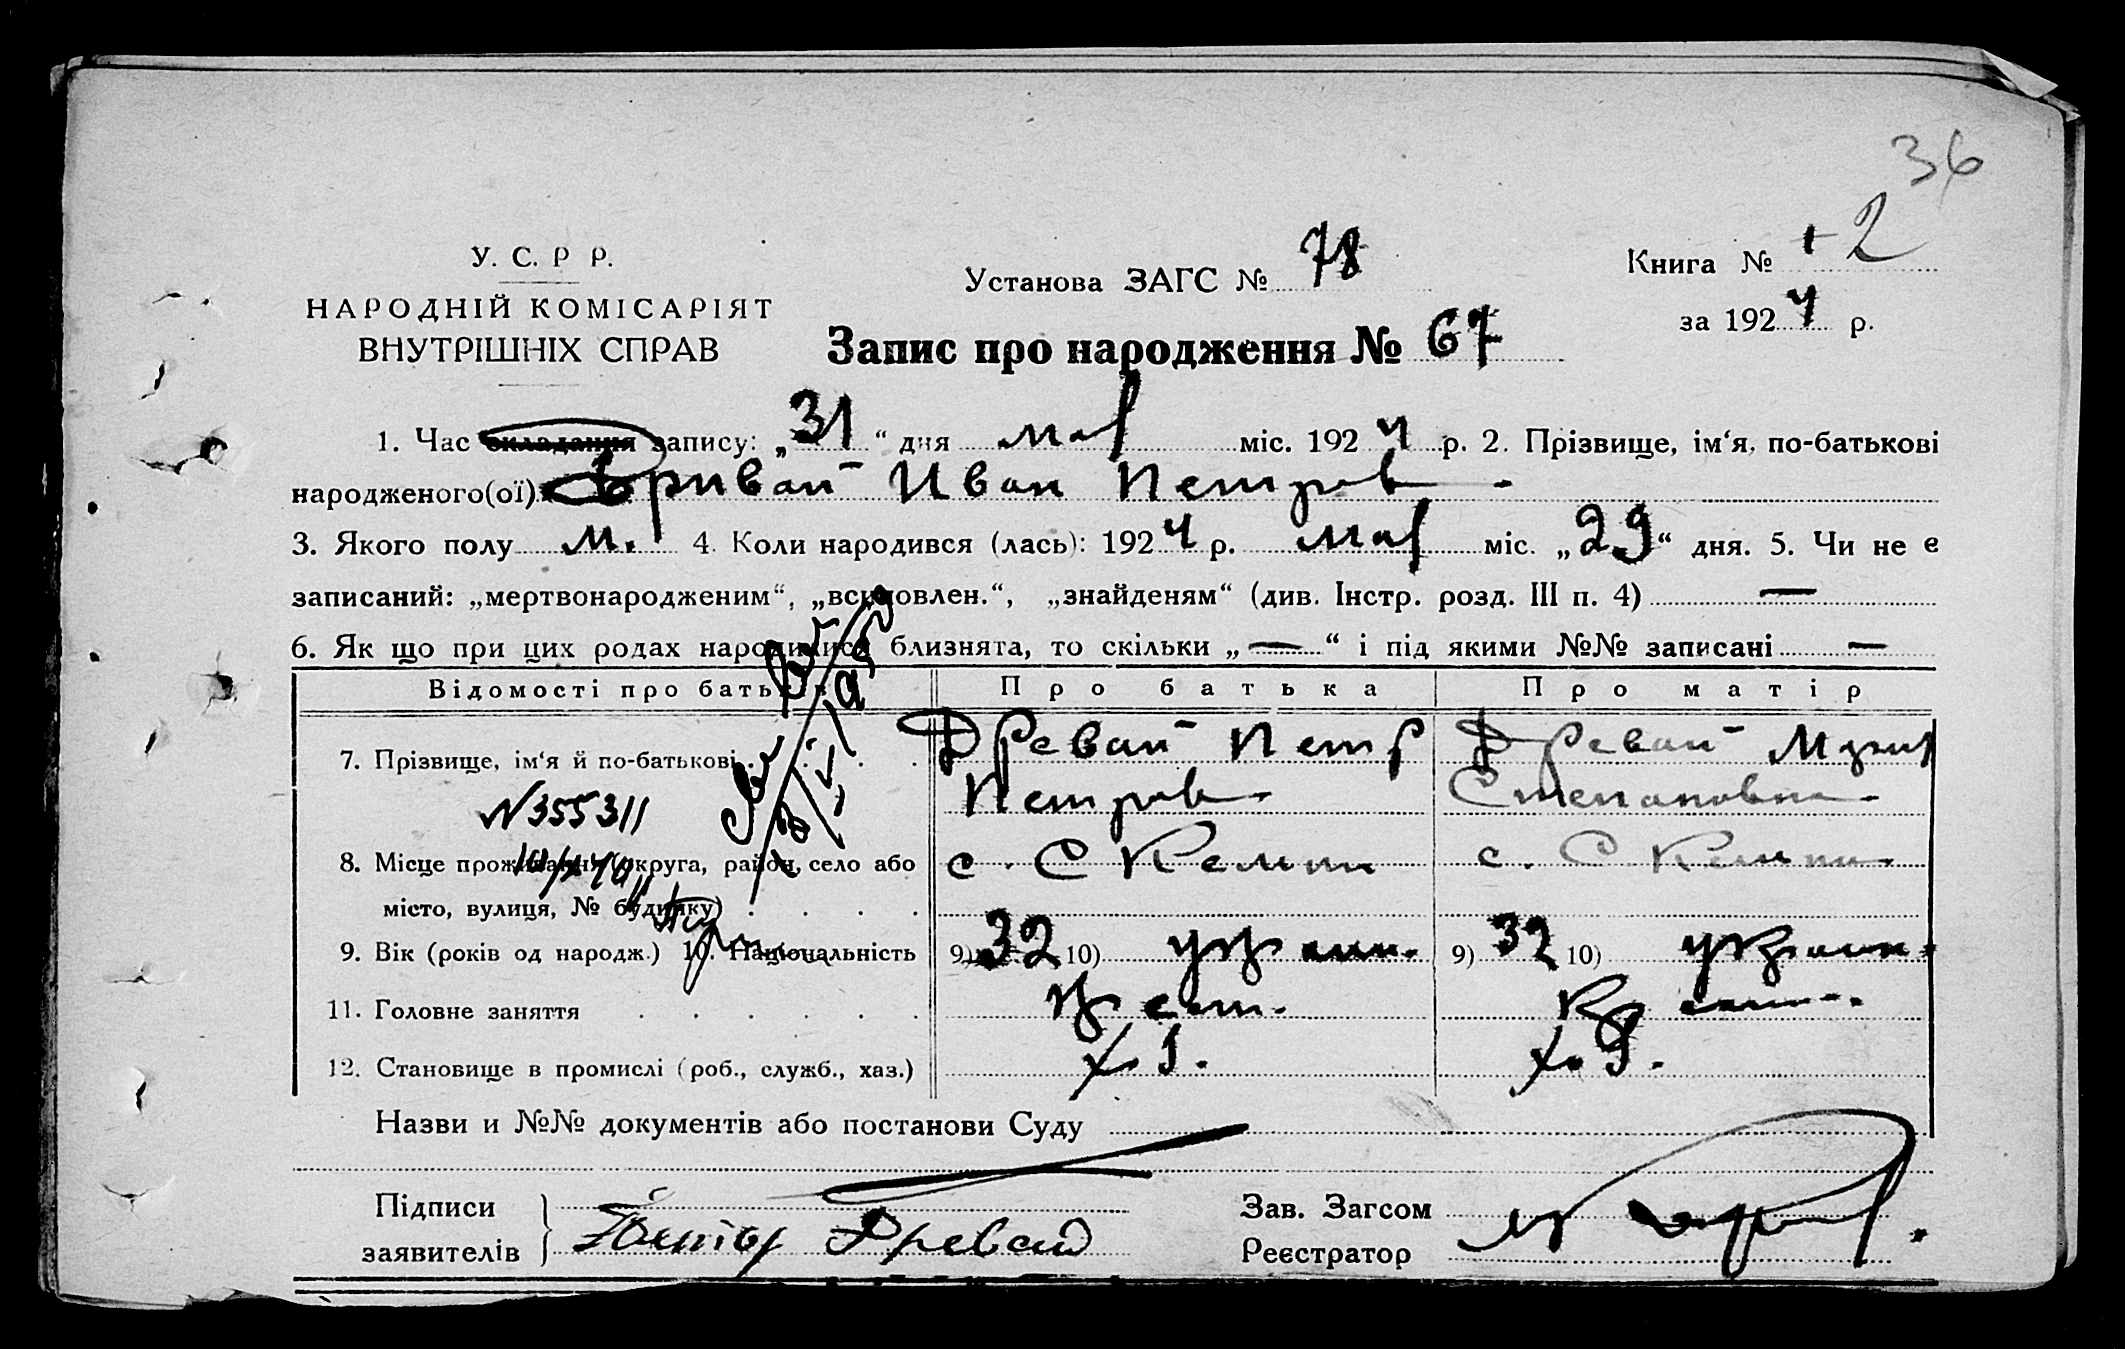 36
У. С. Р Р.
НАРОДНІЙ КОМІСАРІЯТ
ВНУТРІШНІХ СПРАВ
Установа ЗАГС № 78
Книга № 1 2
за 1924 р.
Запис про народження № 67
1. Час складання запису: „31“ дня мая міс. 1924 р. 2. Прізвище, ім‘я, по-батькові
народженого(ої) Дривай Иван Петров
3. Якого полу м. 4. Коли народився (лась): 1924 р. мая міс. „29“ дня. 5. Чи не є
записаний: „мертвонародженим“, „всиновлен.“, „знайденям“ (див. Інстр. розд. III п. 4) —
6. Як що при цих родах народилися близнята, то скільки „—“ і під якими №№ записані —
Відомості про батьків Про батька Про матір
7. Прізвище, ім‘я й по-батькові Древай Петр Древай Мария
Петров Степановна
N 355311
8. Місце проживання (округа, район, село або с. Скельки с. Скельки
місто, вулиця, № будинку)
9. Вік (років од народж.) 10. Національність 9) 32 10) украин. 9) 32 10) украин.
11. Головне заняття крест. крест.
12. Становище в промислі (роб., служб., хаз.) х. Р.
Назви и №№ документів або постанови Суду
Підписи
заявителів Древай
Зав. Загсом
Реєстратор